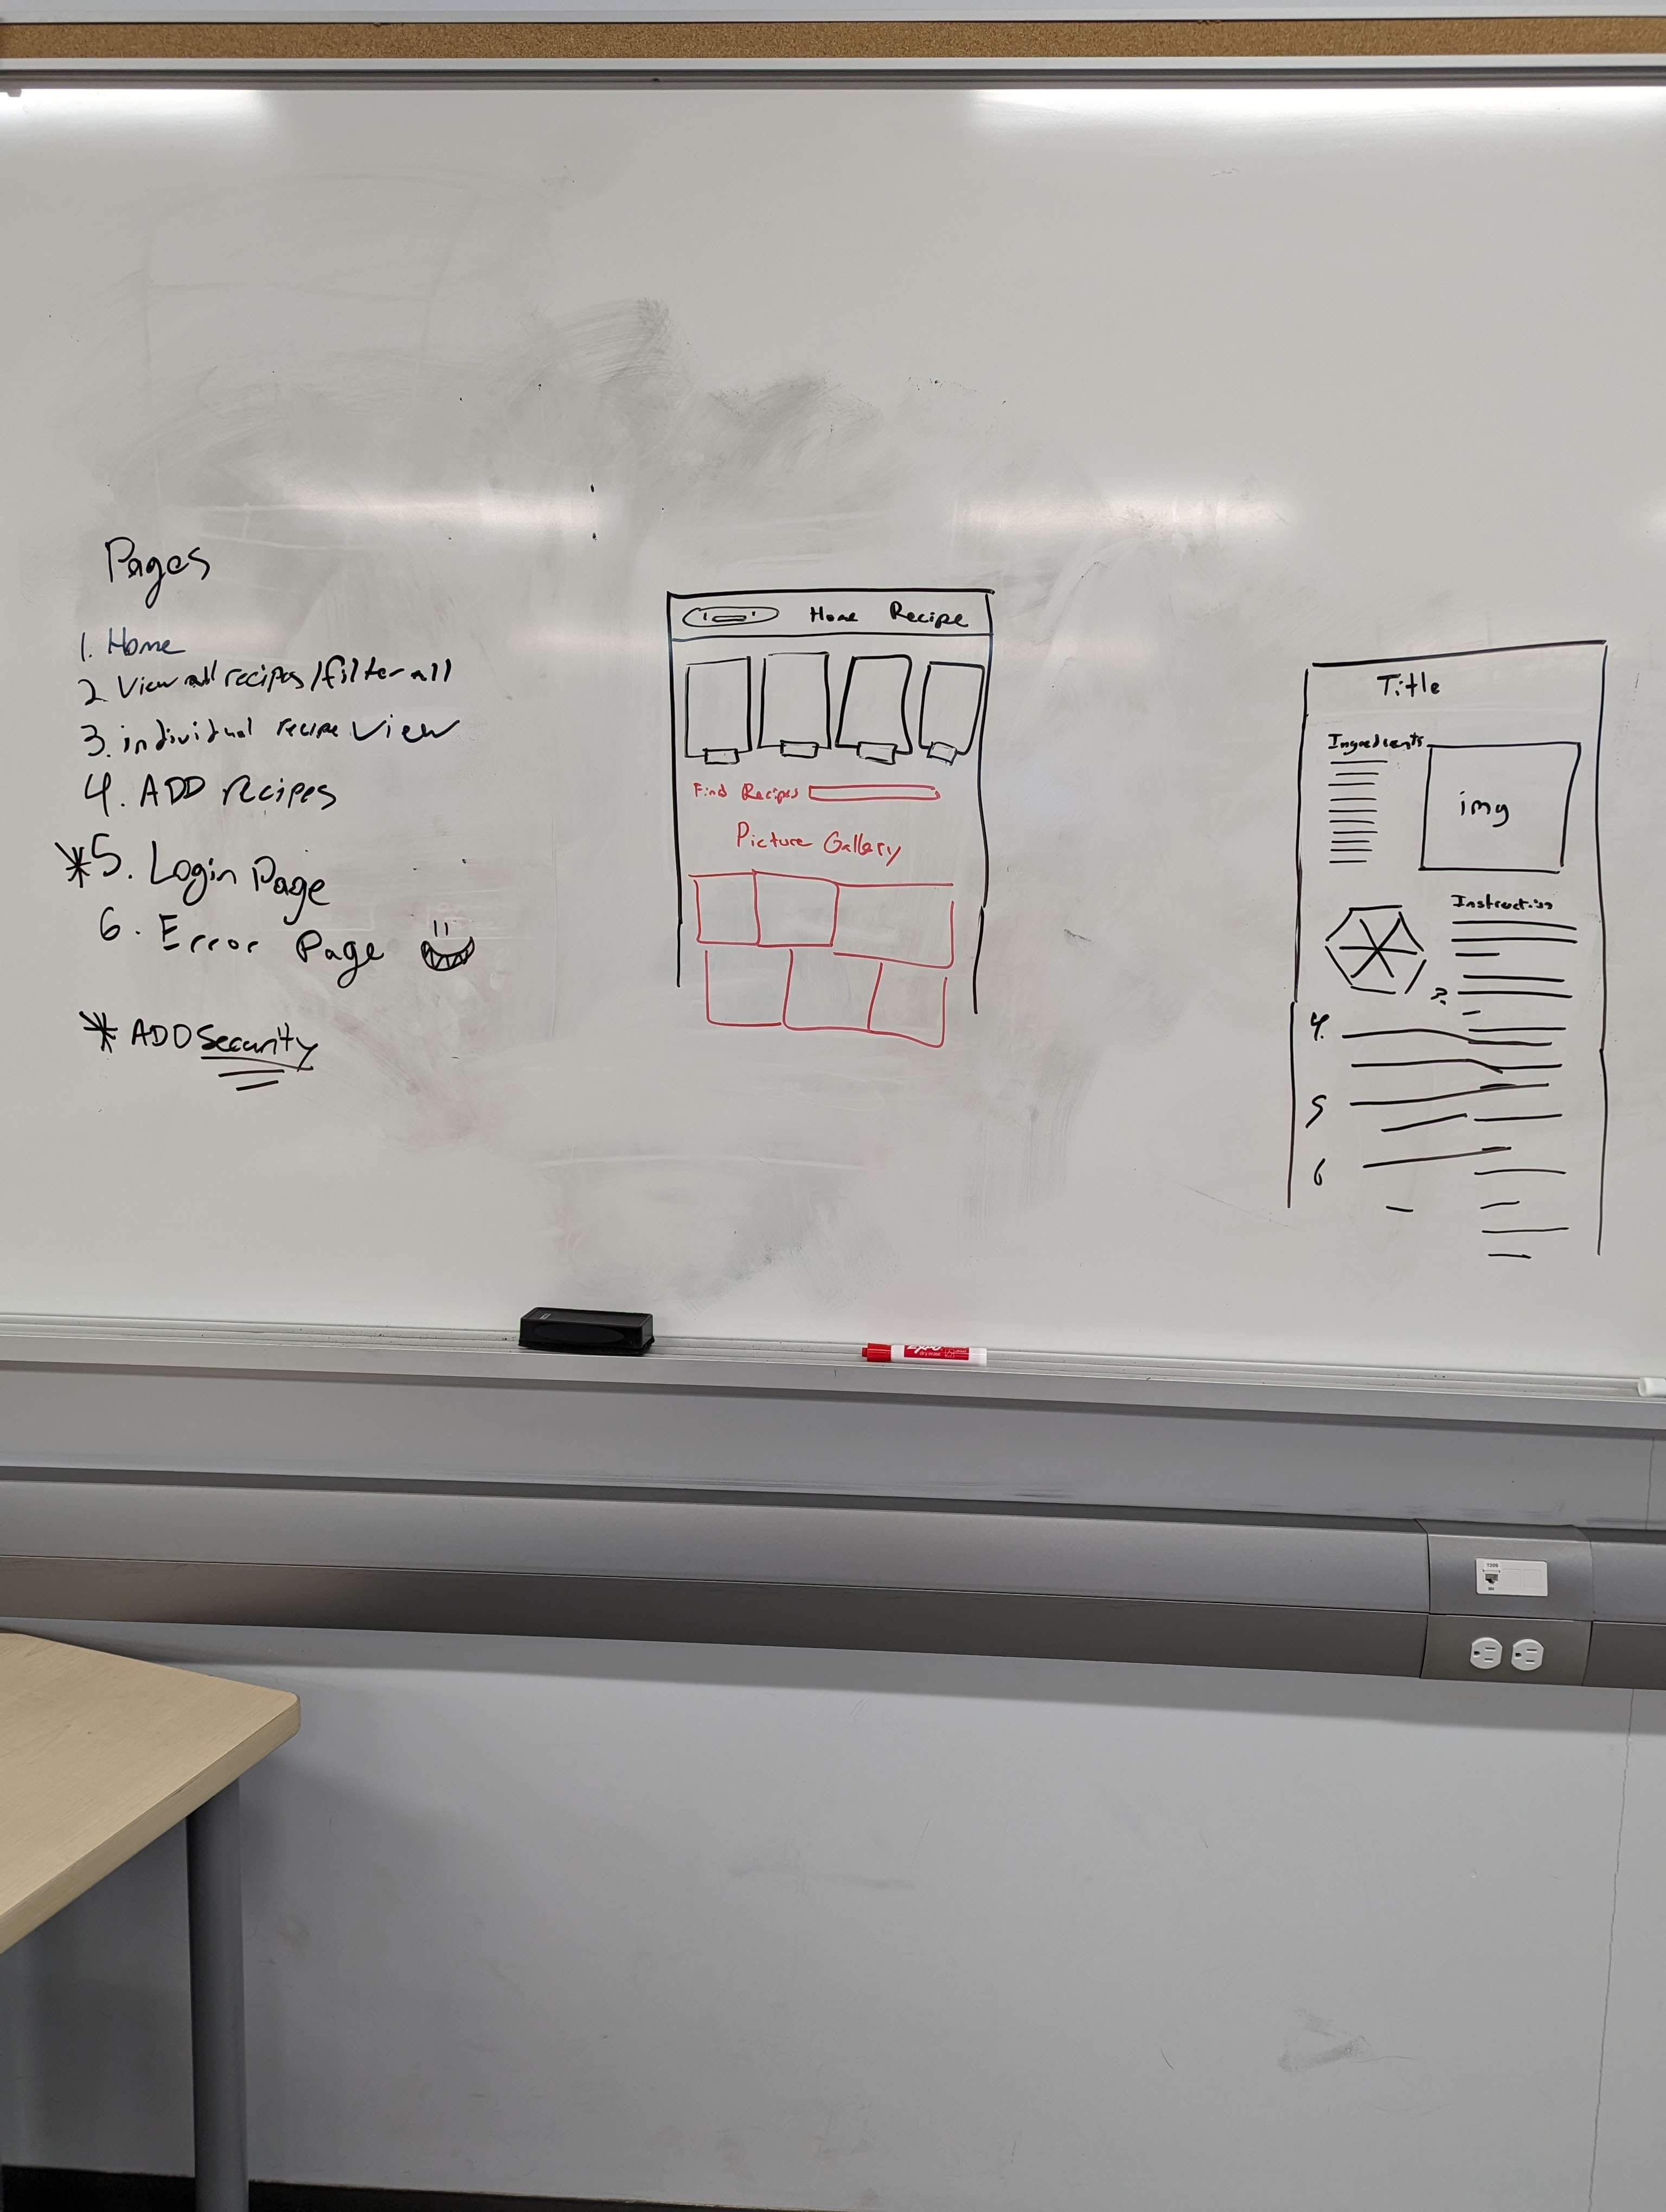 Pages
1. Home
2 View all recipes/filter all
3. individual recipe View
4. ADD recipes
*5. Login Page
6. Error Page
* ADD Security
Home Recipe
Find Recipes
Picture Gallery
Title
Ingredients
img
Instruction
?
4.
5
6
EXPO
dry erase